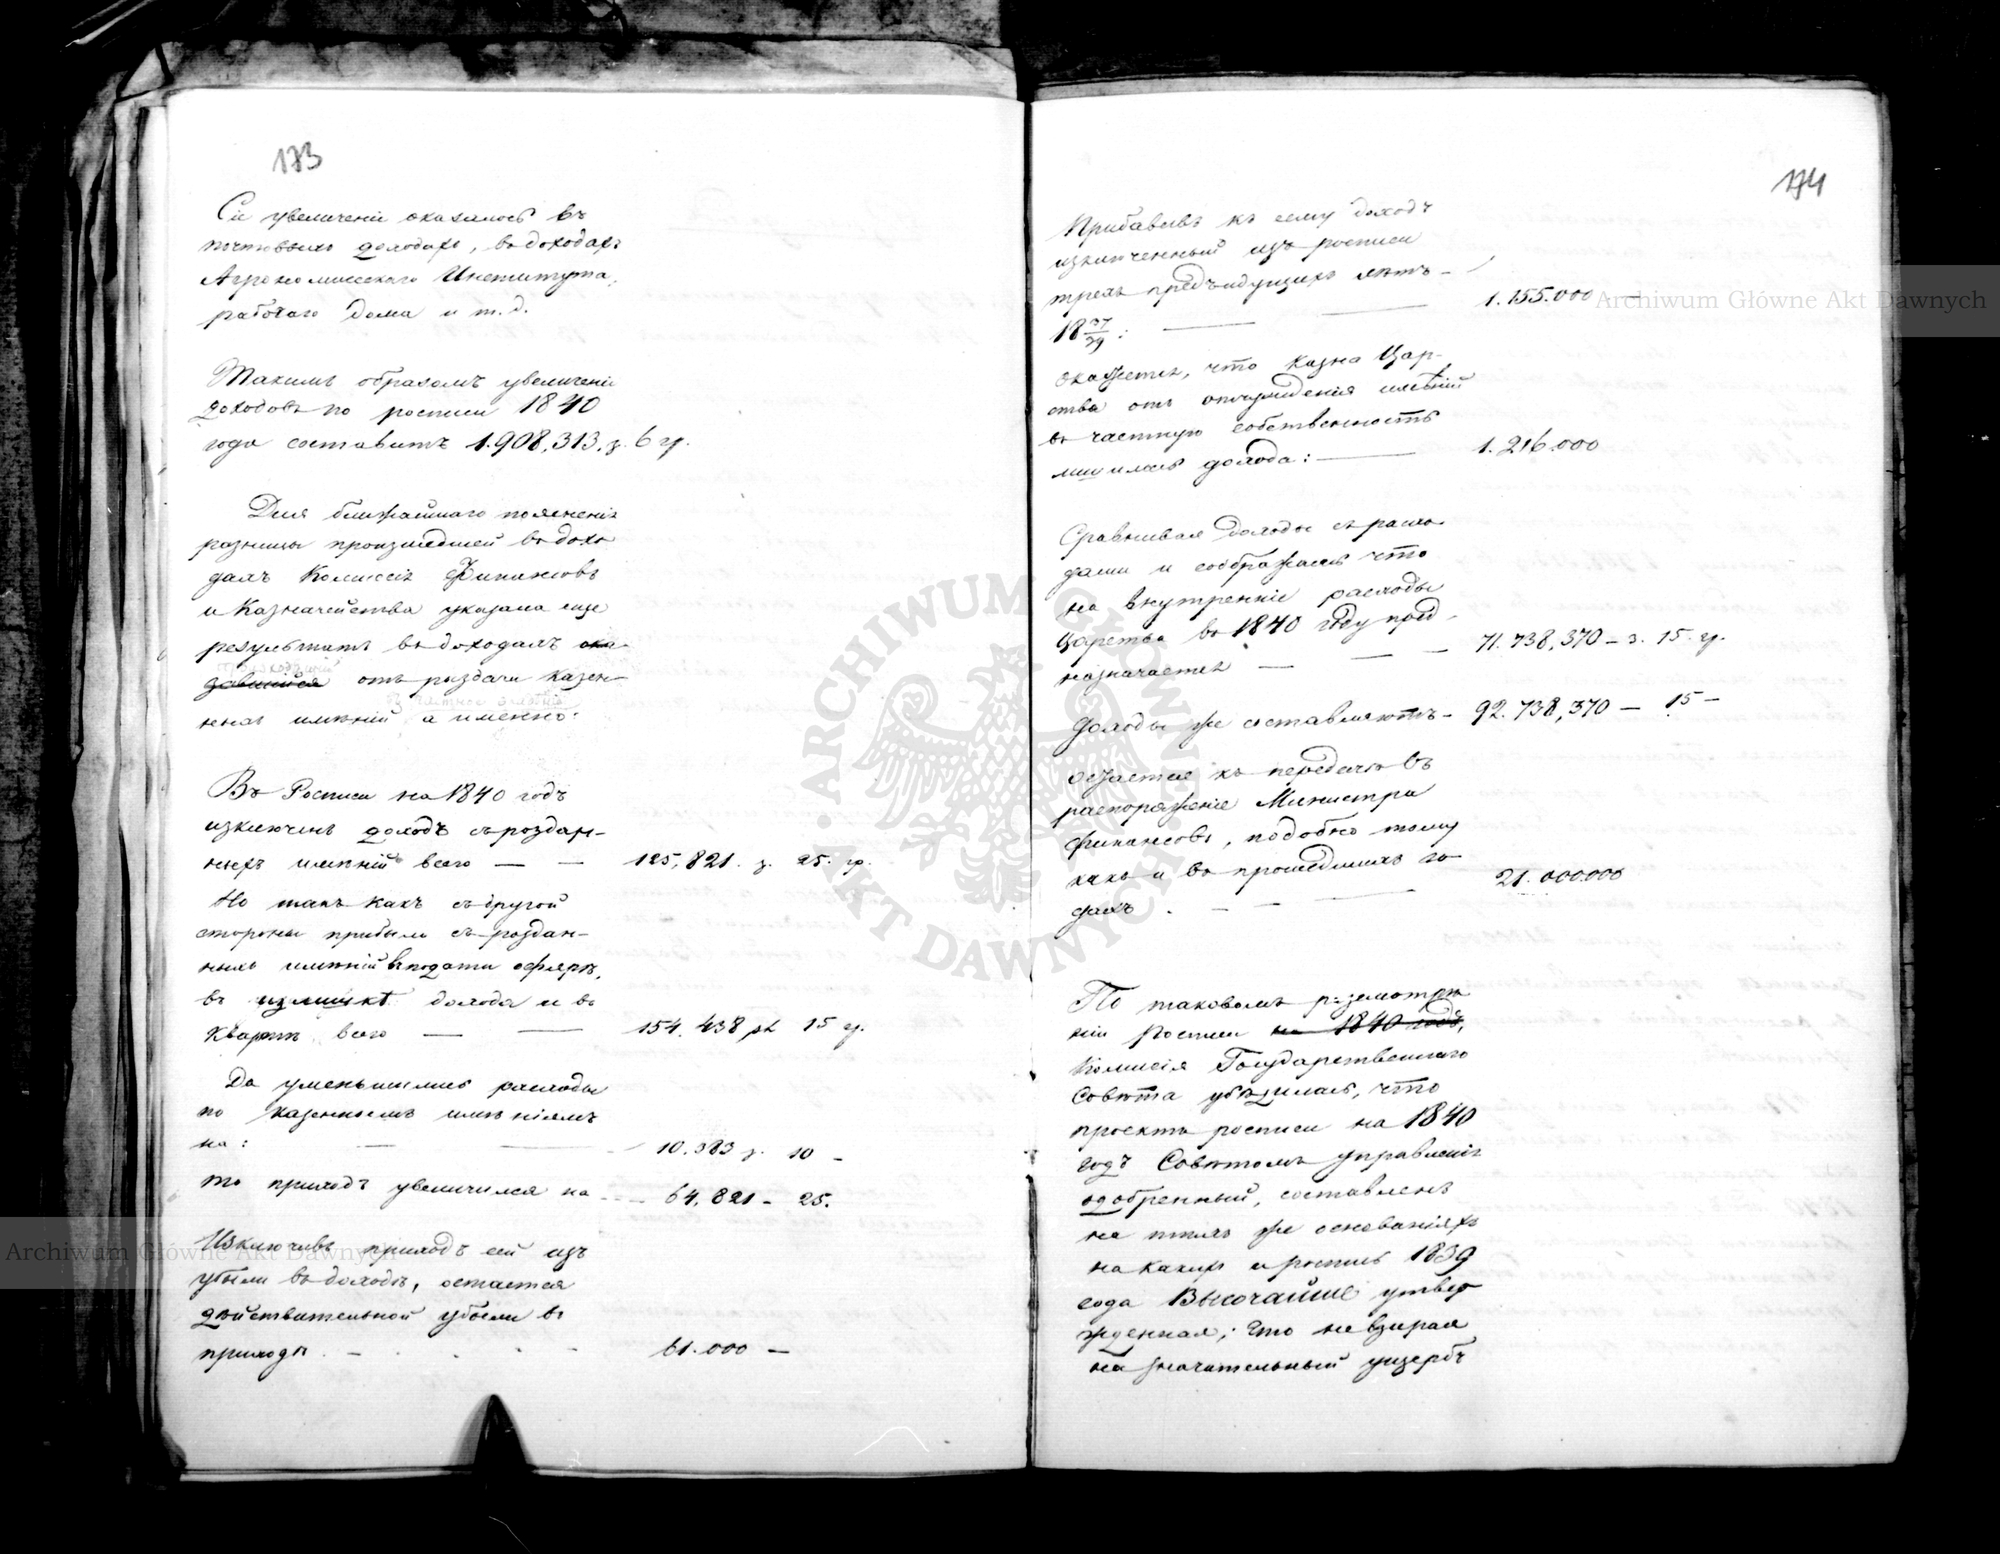 173
Сіе увеличеніе оказалось въ
почтовыхъ доходахъ, въ доходахъ
Агрономическаго Института,
рабочаго дома и т. д.
Такимъ образомъ увеличеніе
доходовъ по росписи 1840
года составитъ 1.908,313. з. 6 гр.
Для ближайшаго поясненія
разницы произшедшей въ дохо
дахъ Комиссіи Финансовъ
и Казначейства указана еще
результатъ въ доходахъ ока-
завшійся отъ раздачи казен-
ныхъ имѣній а именно:
Въ Росписи на 1840 годъ
изключенъ доходъ съ роздан-
ныхъ имѣній всего — — 125,821. з. 25. гр.
Но такъ какъ съ другой
стороны прибыло съ роздан-
ныхъ имѣній въ подати офяры,
въ излишкѣ дохода и въ
кварты всего — — 154.438 зл 15 гр.
Да уменьшились расходы
по казеннымъ имѣніямъ
на: — — 10.383 з. 10 -
то приходъ увеличился на - - - 64,821 - 25.
Изключивъ приходъ сей изъ
убыли въ доходѣ, остается
дѣйствительной убыли въ
приходѣ . - . . - - 61.000 —
174
Прибавивъ къ сему доходъ
изключенный изъ росписи
трехъ предъидущихъ лѣтъ -
18 37/39 : — — 1.155.000
окажется, что казна Цар-
ства отъ отчужденія имѣній
въ частную собственность
лишилась дохода: — 1.216.000
Сравнивая доходы съ расхо
дами и соображаясь что
на внутренніе расходы
Царства въ 1840 году пред-
назначается — — — 71.738,370 - з. 15 гр.
доходы же составляютъ - 92.738,370 — 15 -
остается къ передачѣ въ
распоряженіе Министра
Финансовъ, подобно тому
какъ и въ прошедшихъ го-
дахъ . - - — 21.000.000
По таковомъ разсмотрѣ
ніи Росписи на 1840 годъ,
Комисія Государственнаго
Совѣта убѣдилась, что
проектъ росписи на 1840
годъ Совѣтомъ Управленія
одобренный, составленъ
на тѣхъ же основаніяхъ
на какихъ и роспись 1839
года Высочайше утвер
жденная; что не взирая
на значительный ущербъ
Archiwum Główne Akt Dawnych
Archiwum Główne Akt Dawnych
ARCHIWUM GŁÓWNE AKT DAWNYCH